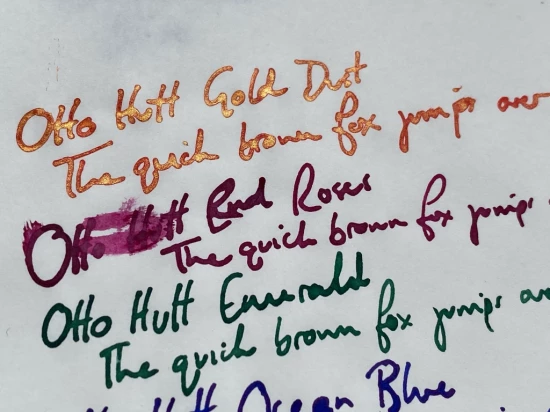 Otto Hutt Gold Dust
The quick brown fox jumps over
Otto Hutt Red Roses
The quick brown fox jumps
Otto Hutt Emerald
The quick brown fox jumps ove
Hutt Ocean Blue